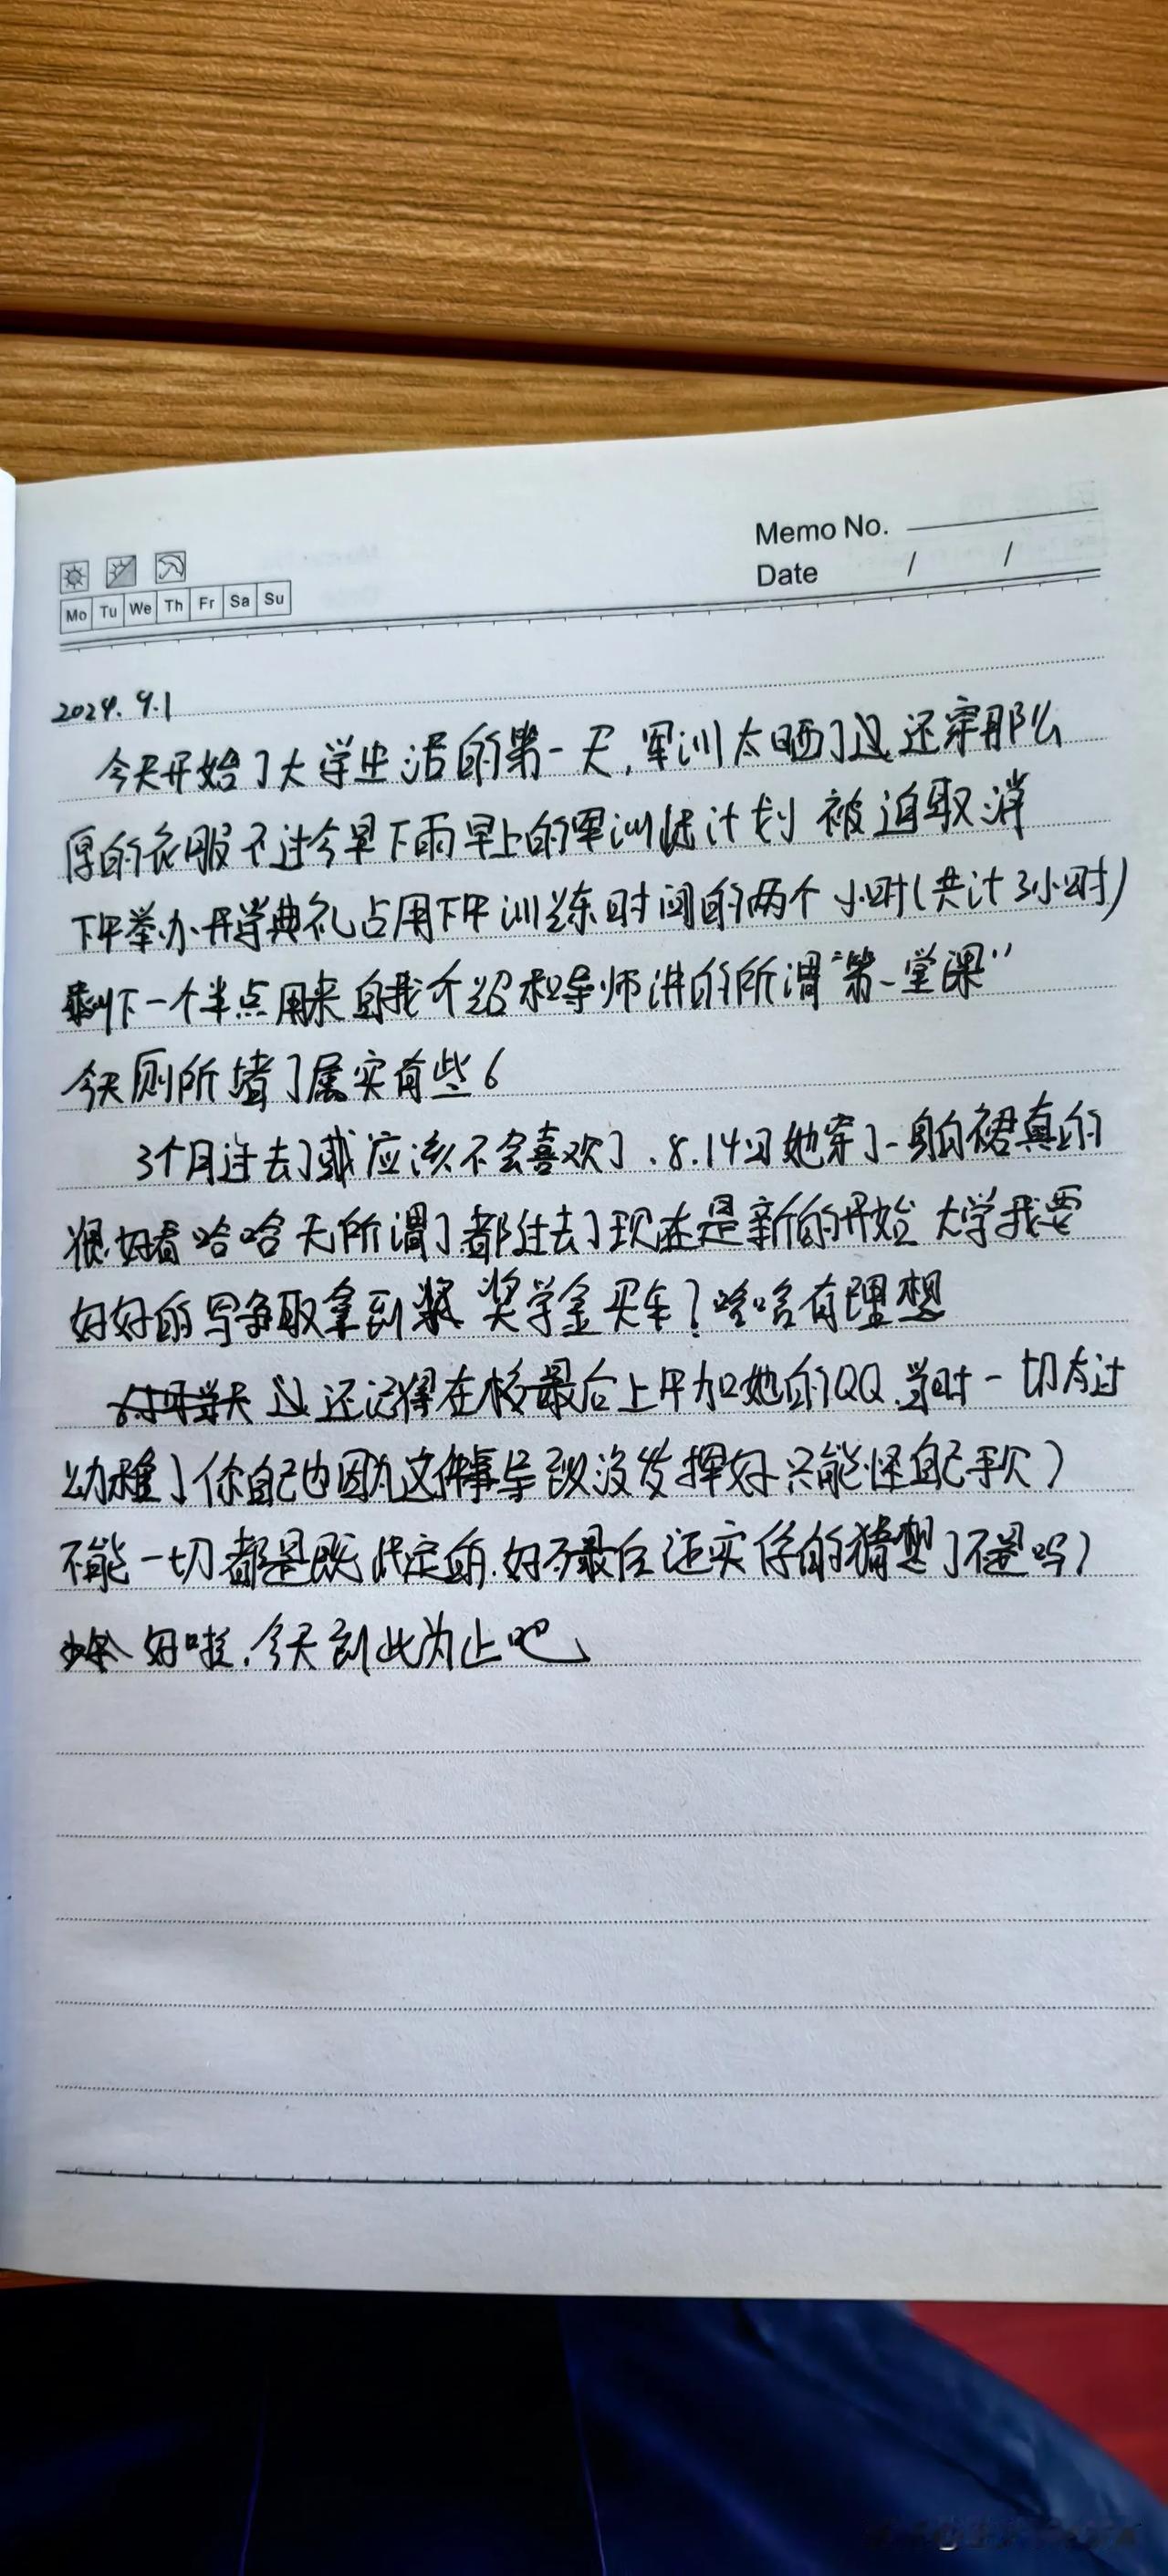 Memo No.
Date / /
Mo Tu We Th Fr Sa Su
2024.9.1
今天开始了大学生活的第一天,军训太晒了这还穿那么
厚的衣服不过今早下雨早上的军训计划被迫取消
下午举办开学典礼占用下午训练时间的两个小时(共计3小时)
剩下一个半点用来自我介绍和导师讲的所谓“第一堂课”
今天厕所堵了属实有些6
3个月过去了我应该不会喜欢了.8.14日她穿了一身白裙真的
很好看哈哈无所谓了都过去了现在是新的开始大学我要
好好的写争取拿到奖学金买车?哈哈有理想
还记得在校最后上午加她的QQ.当时一切太过
幼稚了你自己也因为这件事导致没发挥好只能怪自己
不能一切都是既定的.好不最后证实你的猜想了不是吗?
好啦.今天到此为止吧